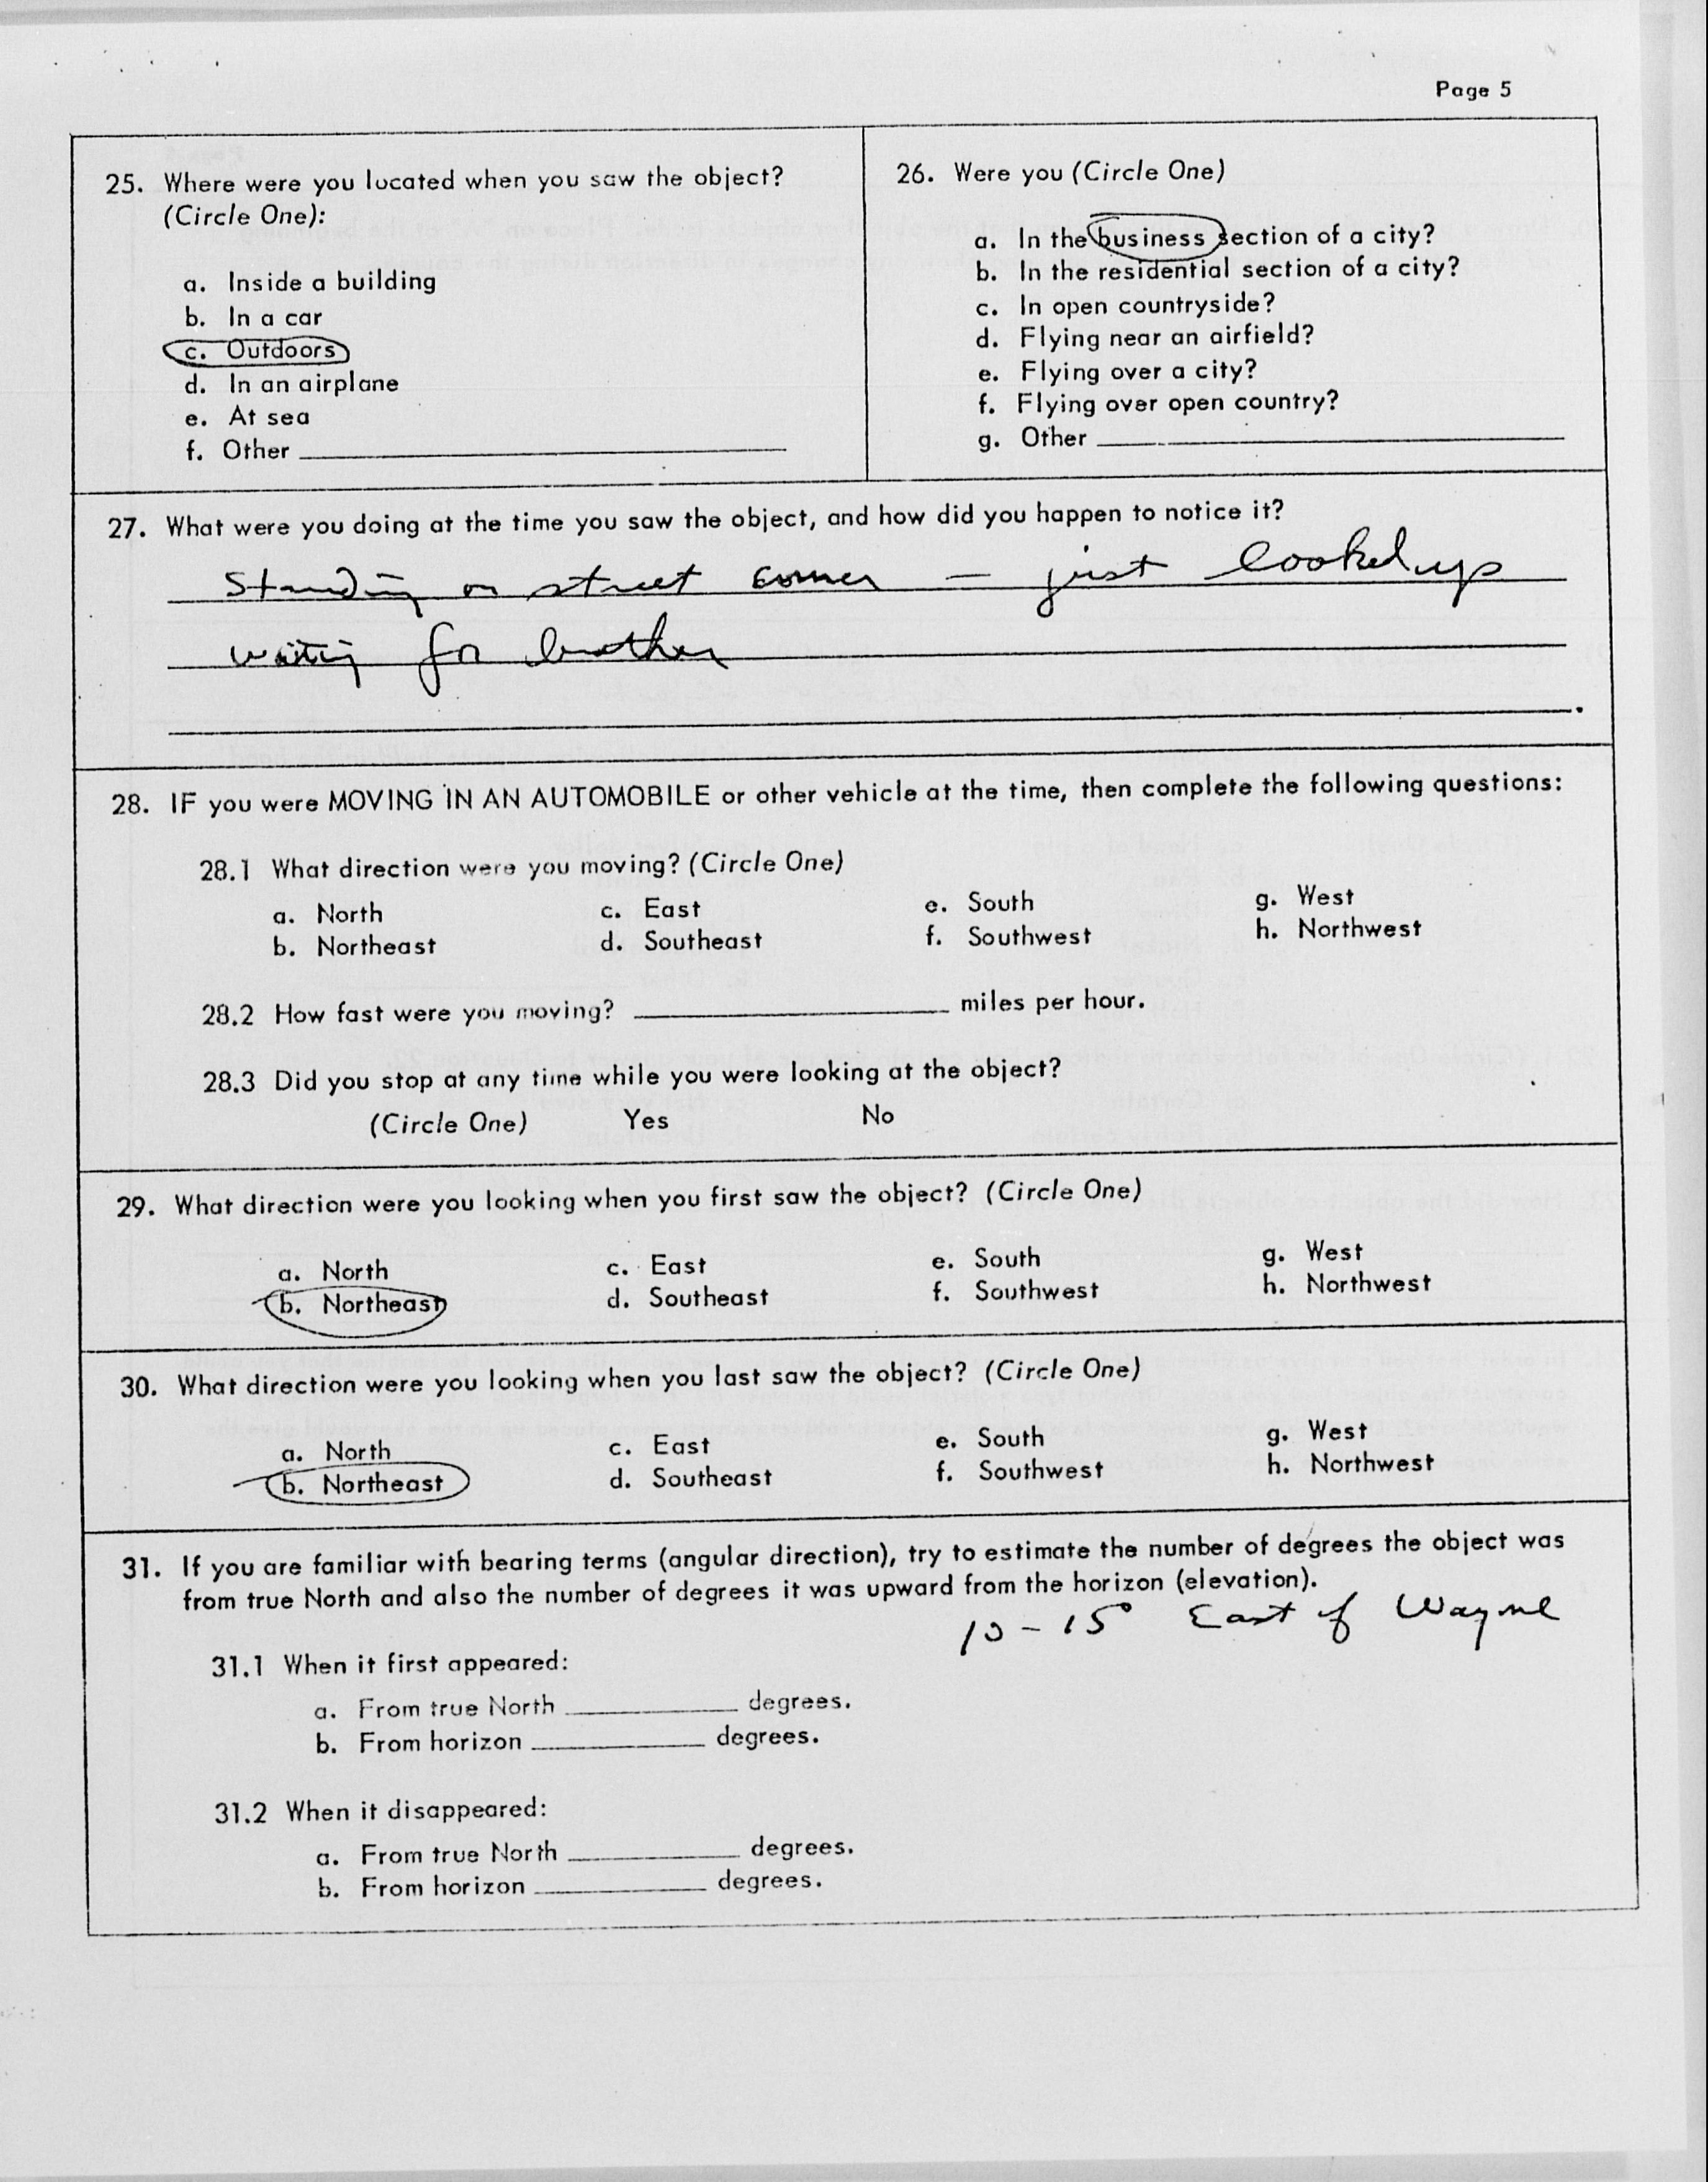 Page 5
25. Where were you located when you saw the object?
(Circle One):
a. Inside a building
b. In a car
c. Outdoors
d. In an airplane
e. At sea
f. Other
26. Were you (Circle One)
a. In the business section of a city?
b. In the residential section of a city?
c. In open countryside?
d. Flying near an airfield?
e. Flying over a city?
f. Flying over open country?
g. Other
27. What were you doing at the time you saw the object, and how did you happen to notice it?
Standing on street corner – just looked up
waiting for brother
28. IF you were MOVING IN AN AUTOMOBILE or other vehicle at the time, then complete the following questions:
28.1 What direction were you moving? (Circle One)
a. North c. East e. South g. West
b. Northeast d. Southeast f. Southwest h. Northwest
28.2 How fast were you moving? miles per hour.
28.3 Did you stop at any time while you were looking at the object?
(Circle One) Yes No
29. What direction were you looking when you first saw the object? (Circle One)
a. North c. East e. South g. West
b. Northeast d. Southeast f. Southwest h. Northwest
30. What direction were you looking when you last saw the object? (Circle One)
a. North c. East e. South g. West
b. Northeast d. Southeast f. Southwest h. Northwest
31. If you are familiar with bearing terms (angular direction), try to estimate the number of degrees the object was
from true North and also the number of degrees it was upward from the horizon (elevation).
10 - 15° East of Wayne
31.1 When it first appeared:
a. From true North degrees.
b. From horizon degrees.
31.2 When it disappeared:
a. From true North degrees.
b. From horizon degrees.